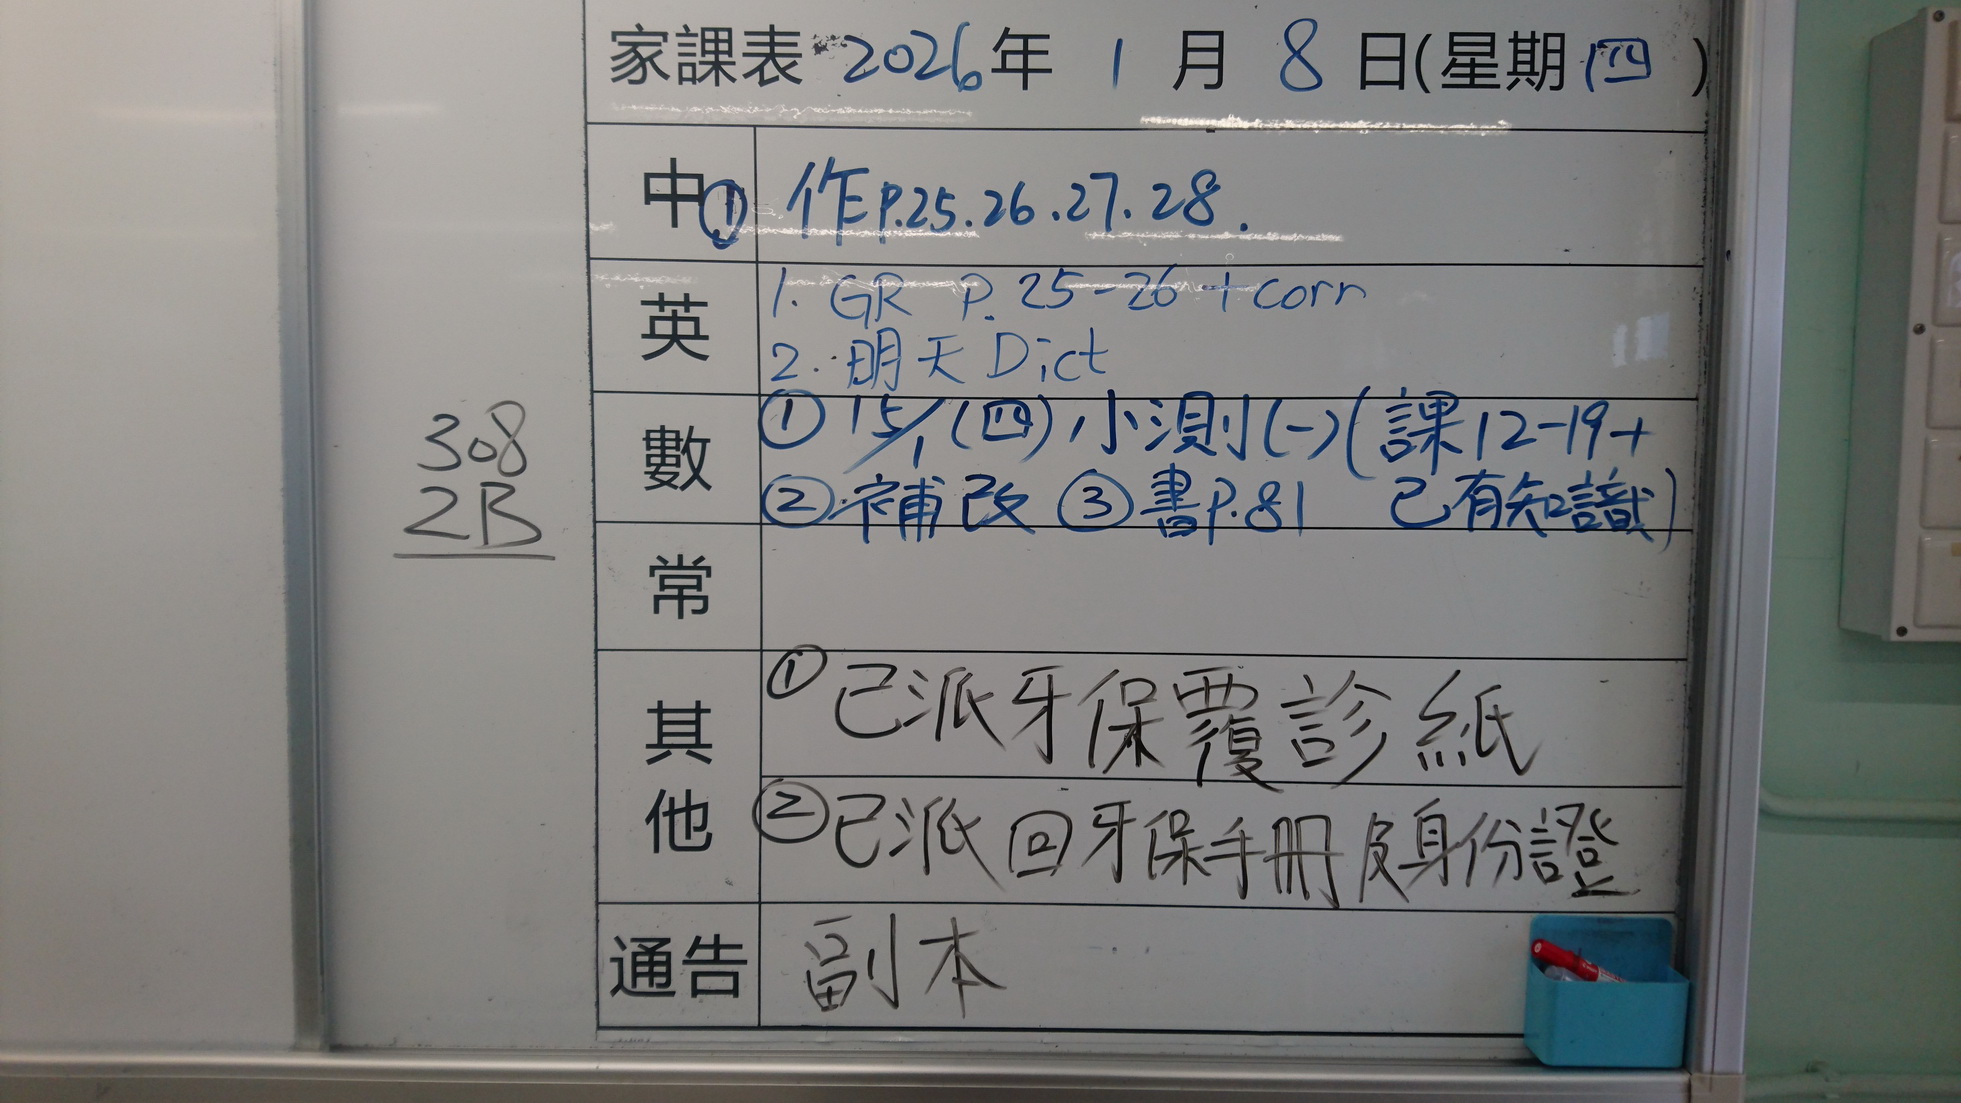 家課表 2026年 1月 8日(星期四)
中① 作P.25.26.27.28.
英 1. GR P. 25-26 + corr
2. 明天 Dict
數 ① 15/1 (四) 小測(一)(課12-19+
② 補改 ③ 書P.81 已有知識)
308
2B
常
其他 ① 已派牙保覆診紙
② 已派回牙保手冊及身份證
通告 副本